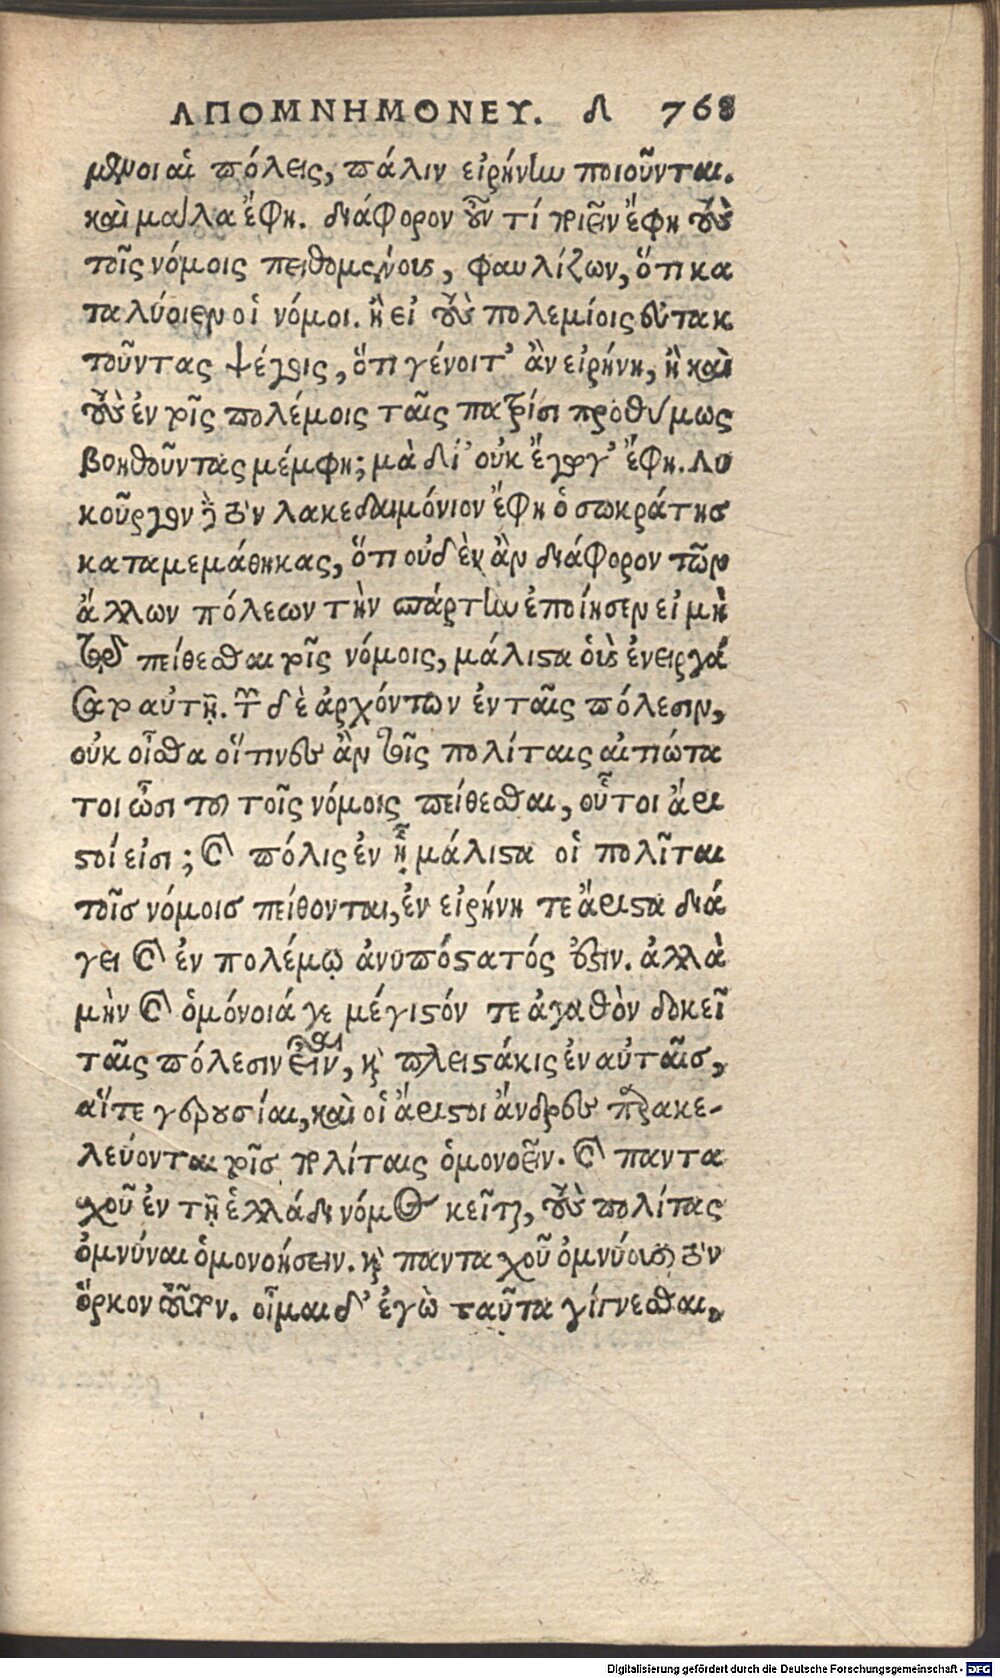 ΑΠΟΜΝΗΜΟΝΕΥ. Δ 768
μενοι αἱ πόλεις, πάλιν εἰρήνην ποιοῦνται.
καὶ μαλα ἔφη. διάφορον οὖν τί ποιεῖν ἔφη τοὺς
τοῖς νόμοις πειθομένους, φαυλίζων, ὅτι κα
ταλύοιεν οἱ νόμοι. ἢ εἰ τοὺς πολεμίοις εὐτακ
τοῦντας ψέγεις, ὅτι γένοιτ’ ἂν εἰρήνη, ἢ καὶ
τοὺς ἐν τοῖς πολέμοις ταῖς πατρίσι προθύμως
βοηθοῦντας μέμφη; μὰ δί’ οὐκ ἔγωγ’ ἔφη. Λυ
κοῦργον δὲ τὸν λακεδαιμόνιον ἔφη ὁ σωκράτης
καταμεμάθηκας, ὅτι οὐδὲν ἂν διάφορον τῶν
ἄλλων πόλεων τὴν σπάρτην ἐποίησεν εἰ μὴ
τὸ πείθεσθαι τοῖς νόμοις, μάλιστα οὺς ἐνειργά
σαρ αὐτῇ. τῶν δὲ ἀρχόντων ἐν ταῖς πόλεσιν,
οὐκ οἶσθα οἵτινες ἂν τοῖς πολίταις αἰτιώτα
τοι ὦσι τοῦ τοῖς νόμοις πείθεσθαι, οὗτοι ἄρι
στοί εἰσι; καὶ πόλις ἐν ᾗ μάλιστα οἱ πολῖται
τοῖς νόμοις πείθονται, ἐν εἰρήνη τε ἄριστα διά
γει καὶ ἐν πολέμῳ ἀνυπόστατός ἐστιν. ἀλλὰ
μὴν καὶ ὁμόνοιά γε μέγιστόν τε ἀγαθὸν δοκεῖ
ταῖς πόλεσιν εἶναι, καὶ πλειστάκις ἐν αὐταῖς,
αἵτε γερουσίαι, καὶ οἱ ἄριστοι ἄνδρες παρακε-
λεύονται τοῖς πολίταις ὁμονοεῖν. καὶ παντα
χοῦ ἐν τῇ ἑλλάδι νόμος κεῖται, τοὺς πολίτας
ὀμνύναι ὁμονοήσειν. καὶ πανταχοῦ ὀμνύουσι τὸν
ὅρκον τοῦτον. οἶμαι δ’ ἐγὼ ταῦτα γίγνεσθαι,
Digitalisierung gefördert durch die Deutsche Forschungsgemeinschaft - DFG